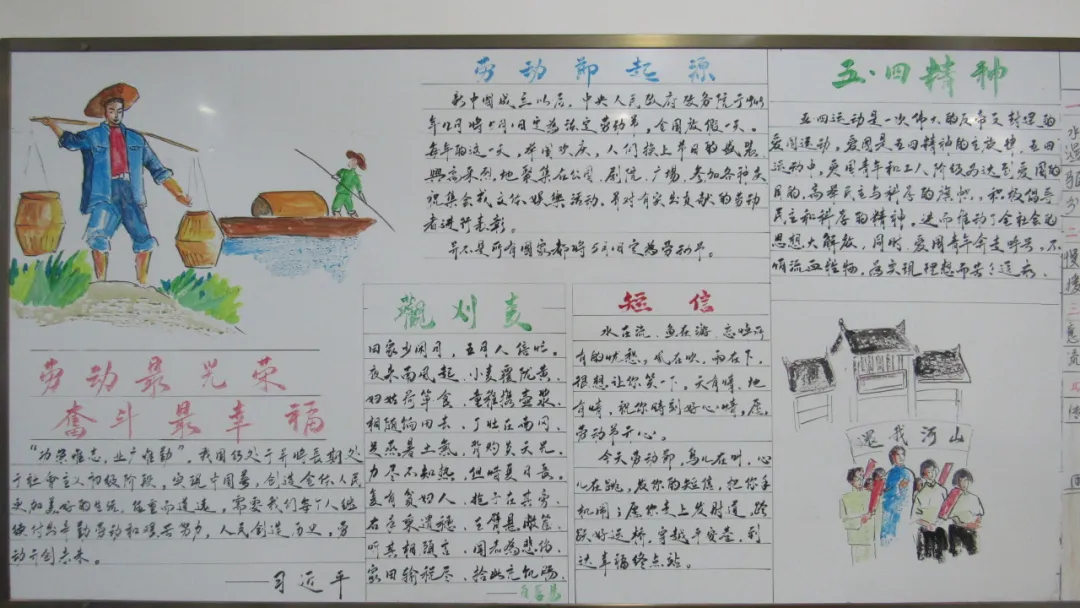 劳动最光荣
奋斗最幸福
“功崇惟志，业广惟勤”。我国仍处于并将长期处
于社会主义初级阶段，实现中国梦，创造全体人民
更加美好的生活，任重而道远，需要我们每个人继
续付出辛勤劳动和艰苦努力。人民创造历史，劳
动开创未来。
——习近平
劳动节起源
新中国成立以后，中央人民政府政务院于
年12月将5月1日定为法定劳动节，全国放假一天。
每年的这一天，举国欢庆，人们换上节日的盛装，
興高采烈地聚集在公园、剧院、广场，参加各种庆
祝集会或文体娱樂活动，并对有突出贡献的劳动
者进行表彰。
并不是所有国家都將5月1日定为劳动节。
觀刈麦
田家少闲月，五月人倍忙。
夜来南风起，小麦覆陇黄。
妇姑荷箪食，童稚携壶浆，
相随饷田去，丁壮在南冈。
足蒸暑土氣，背灼炎天光，
力尽不知熱，但惜夏日长。
复有贫妇人，抱子在其旁，
右手秉遺穗，左臂悬敝筐。
听其相顾言，闻者為悲伤。
家田输税尽，拾此充饥肠。
短信
水在流，鱼在游，忘憂所
有的忧愁，风在吹，雨在下，
很想让你笑一下，天有晴，地
有晴，祝你時刻好心晴，愿
劳动节开心。
今天劳动節，鸟儿在叫，心
儿在跳，发你的短信，把你手
机闹；愿你走上发财道，踏
跃好运桥，穿越平安壹，到
达幸福终点站。
五·四精神
五四运动是一次伟大的反帝反封建的
爱国运动，爱国是五四精神的主旋律，五四
运动中，爱国青年和工人阶级为达到爱国的
目的，高举民主与科学的旗帜，积极倡导
民主和科学的精神，进而推动了全社会的
思想大解放，同时，爱国青年奔走呼号，不
惜流血牺牲，為实现理想而苦苦追求、
還我河山